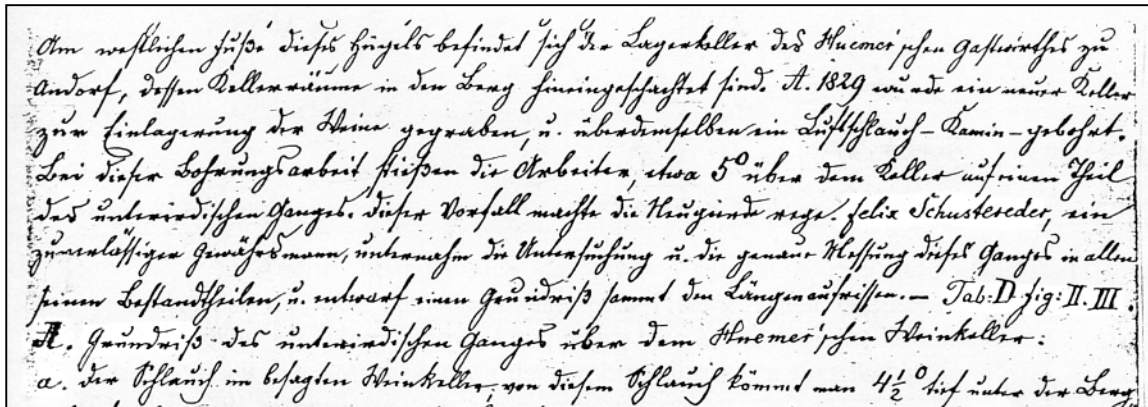 Am westlichen Fuße dieses Hügels befindet sich der Lagerkeller des Huemer'schen Gastwirthes zu
Andorf, dessen Kellerräume in den Berg hineingeschachtet sind. A. 1829 wurde ein neuer Keller
zur Einlagerung der Weine gegraben, u. über demselben ein Luftschlauch – Kamin – gebohrt.
Bei dieser Bohrungsarbeit stießen die Arbeiter, etwa 5° über dem Keller auf einen Theil
des unterirdischen Ganges. Dieser Vorfall machte die Neugierde rege. Felix Schustereder, ein
zuverlässiger Gewährsmann, unternahm die Untersuchung u. die genaue Messung dieses Ganges in allen
seinen Bestandtheilen, u. entwarf einen Grundriß sammt den Längenaufrissen. – Tab: D. fig: II. III.
A. Grundriß des unterirdischen Ganges über dem Huemer'schen Weinkeller:
a. Der Schlauch im besagten Weinkeller, von diesem Schlauch kömmt man 4½° tief unter der Berg